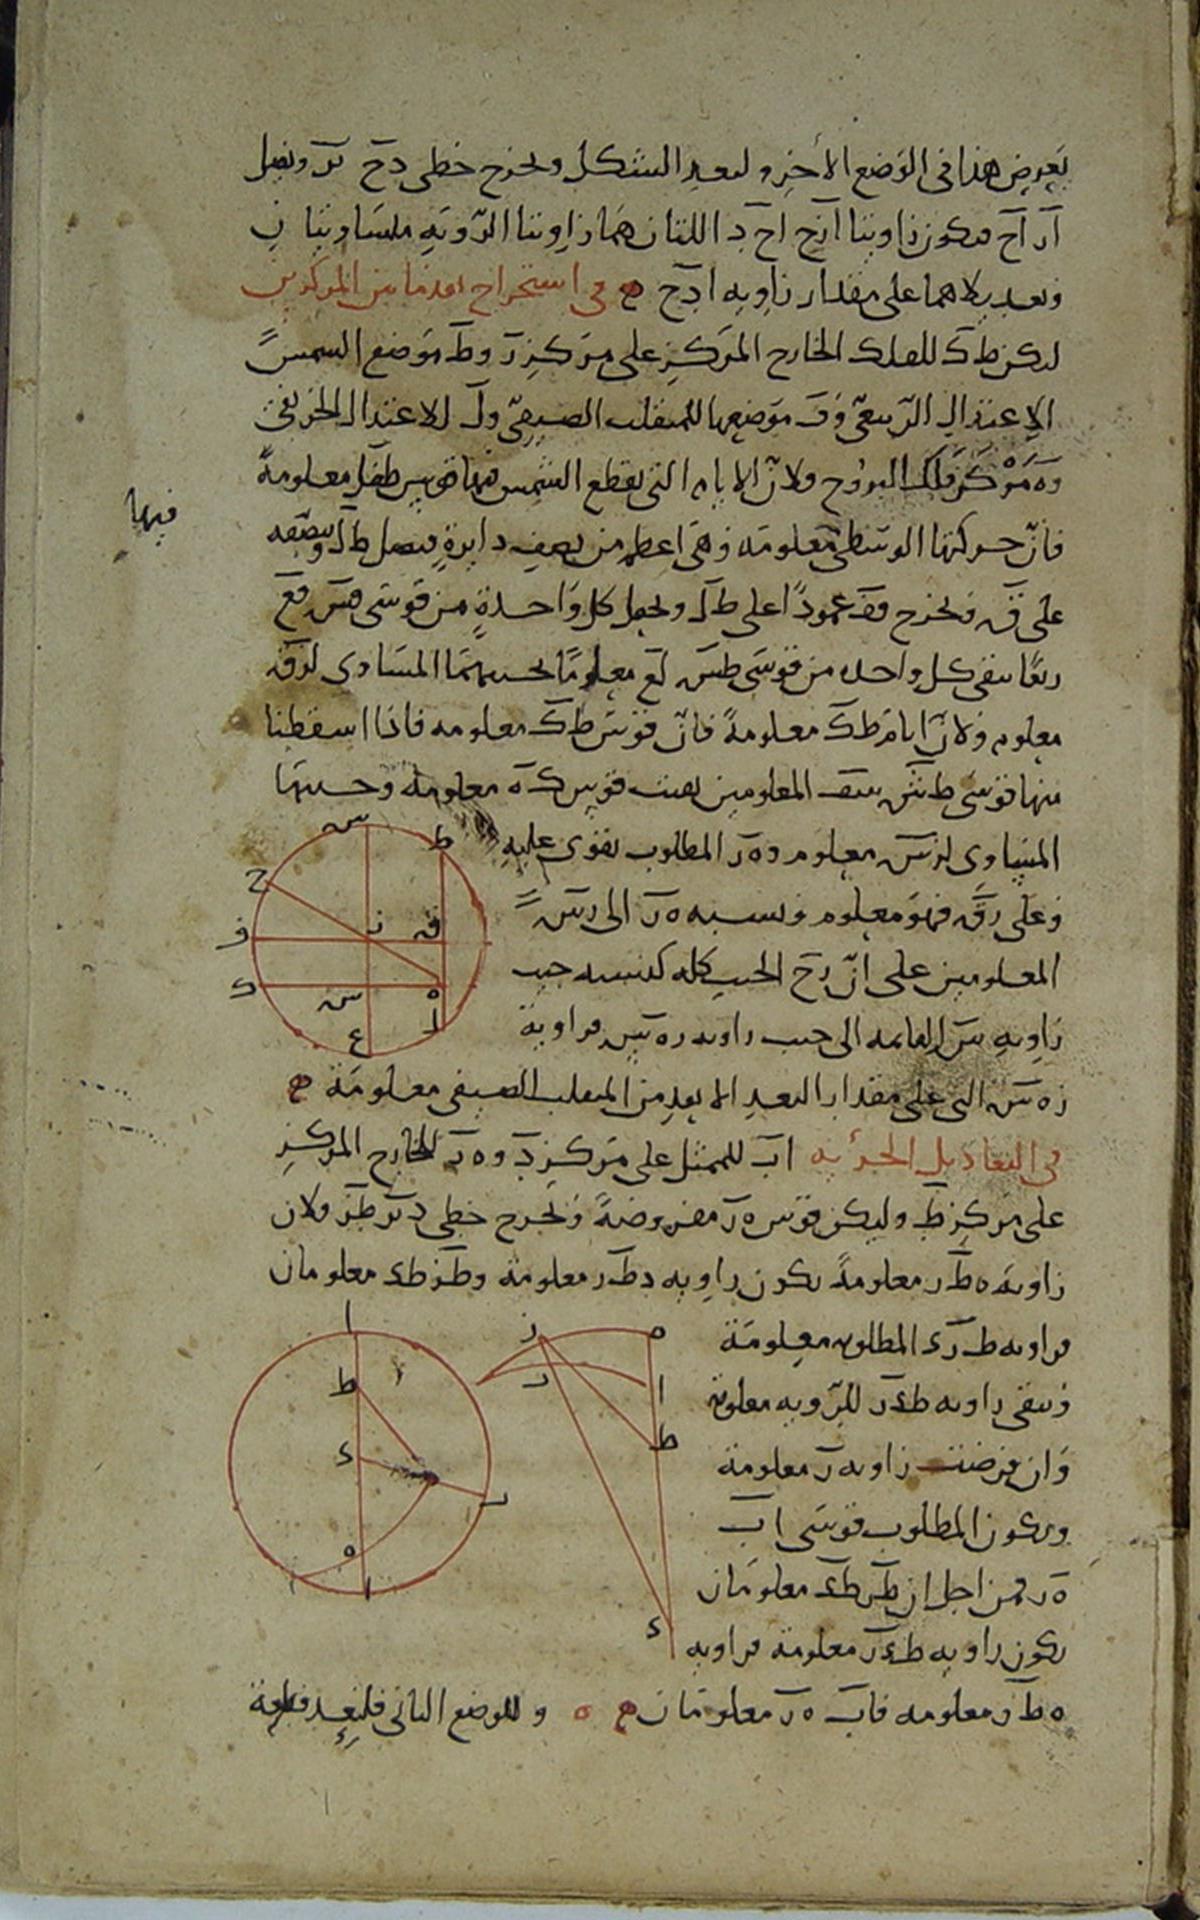 نعرض هذا فى الوضع الأخر ولنعد الشكل ونخرج خطى دح در ونصل
ار اح فتكون زاويتا ارح احد اللتان هما زاويتا الرؤية متساويتان
وتعديلاهما على مقدار زاوية ادح في استخراج بعد ما بين المركزين
ليكن طك للفلك الخارج المركز على مركز ز وط موضع الشمس
الاعتدال الربيعى وك موضعها للمنقلب الصيفى ول للاعتدال الخريفى
وه مركز فلك البروج ولان الايام التى يقطع الشمس فيها قوس طكل معلومة
فيها
فان حركتها الوسطى معلومة وهى اعظم من نصف دايرة فنصل طل وننصفه
على ق ونخرج عمودا على طل ونجعل كل واحدة من قوسى
ربعا يبقى كل واحد من قوسى طس لع معلوما المساوى لزق
معلوم ولان ايام طك معلومة فان قوس طك معلومه فاذا اسقطنا
منها قوسى طس المعلومين بقيت قوس معلومة وجيبها
المساوى لزس معلوم وه ز المطلوب يقوى عليه
وعلى زق فهو معلوم ونسبه ه ز الى زس
المعلومين على ان زح الجيب كله كنسبه جيب
زاويه س القايمه الى جيب زاويه زه س فزاوية
زه س التى على مقدار البعد الابعد من المنقلب الصيفى معلومة
فى التعاديل الجزئيه اب للممثل على مركز د وه ز للخارج المركز
على مركز ط وليكن قوس ه ز مفروضة ونخرج خطى دبز طز فلان
زاوية ه ط ز معلومة يكون زاويه دطز معلومة وطز طد معلومان
فزاويه طزد المطلوبه معلومة
وتبقى زاويه طدز للرؤيه معلومة
وان فرضت زاويه ز معلومة
ويكون المطلوب قوسى اب
ه ز فمن اجل ان طز طد معلومان
يكون زاويه طدز معلومة فزاويه
ه ط ز معلومه فاب ه ز معلومان وللوضع الثانى فلنعد قطعة
س
ط
ح
ز
ق
ف
ك
ه
س
ل
ع
ا
ط
د
ب
ه
ا
ز
ه
ب
ا
ط
د